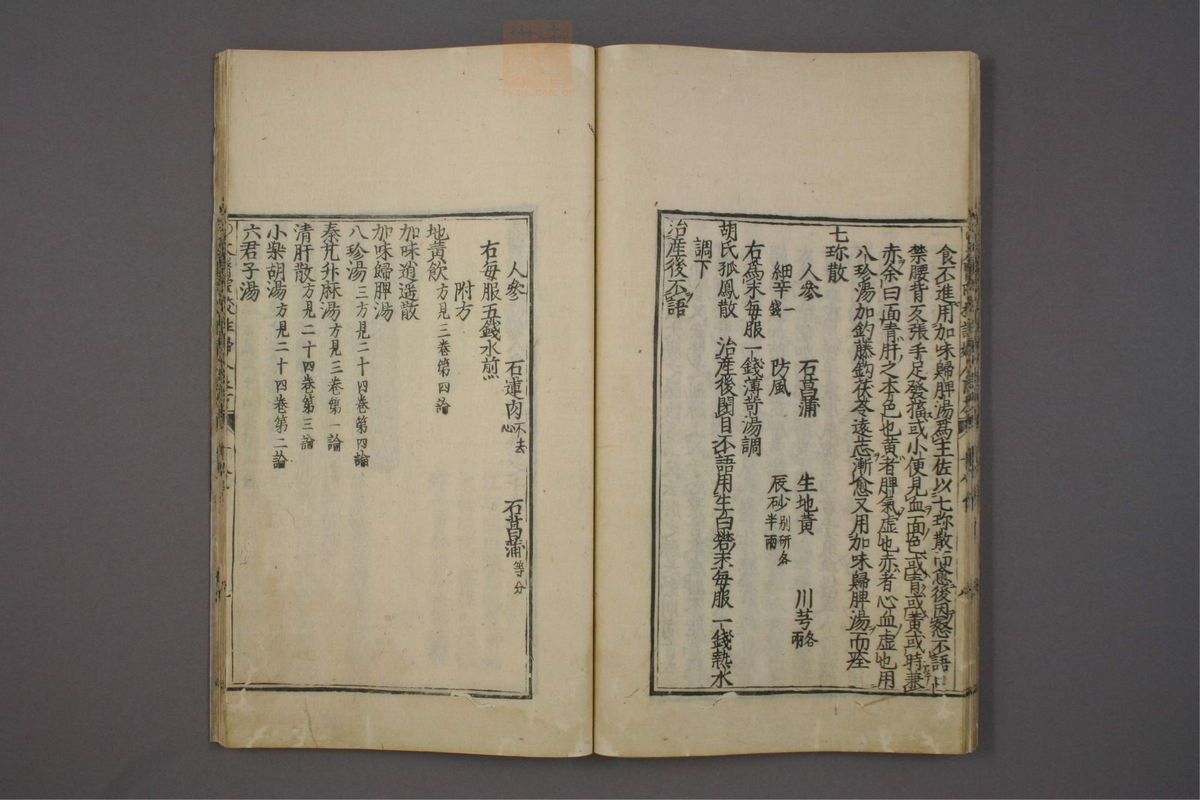 食不進用加味歸脾湯爲主佐以七珎散而愈後因怒不語口
禁腰背反張手足發搐或小便見血面色或青或黄或時兼
赤余曰面青肝之本色也黄者脾氣虚也赤者心血虚也用
八珍湯加釣藤鈎茯苓遠志漸愈又用加味歸脾湯而痊
七珎散
人參 石菖蒲 生地黄 川芎各一兩
細辛一錢 防風 辰砂別研各半兩
右爲末每服一錢薄苛湯調
胡氏孤鳳散 治産後閉目不語用生白礬末每服一錢熱水
調下
治産後不語
人參 石蓮肉不去心 石菖蒲等分
右每服五錢水煎
附方
地黄飲方見三卷第四論
加味逍遥散
加味歸脾湯
八珍湯三方見二十四卷第四論
秦艽升麻湯方見三卷第一論
清肝散方見二十四卷第三論
小柴胡湯方見二十四卷第二論
六君子湯